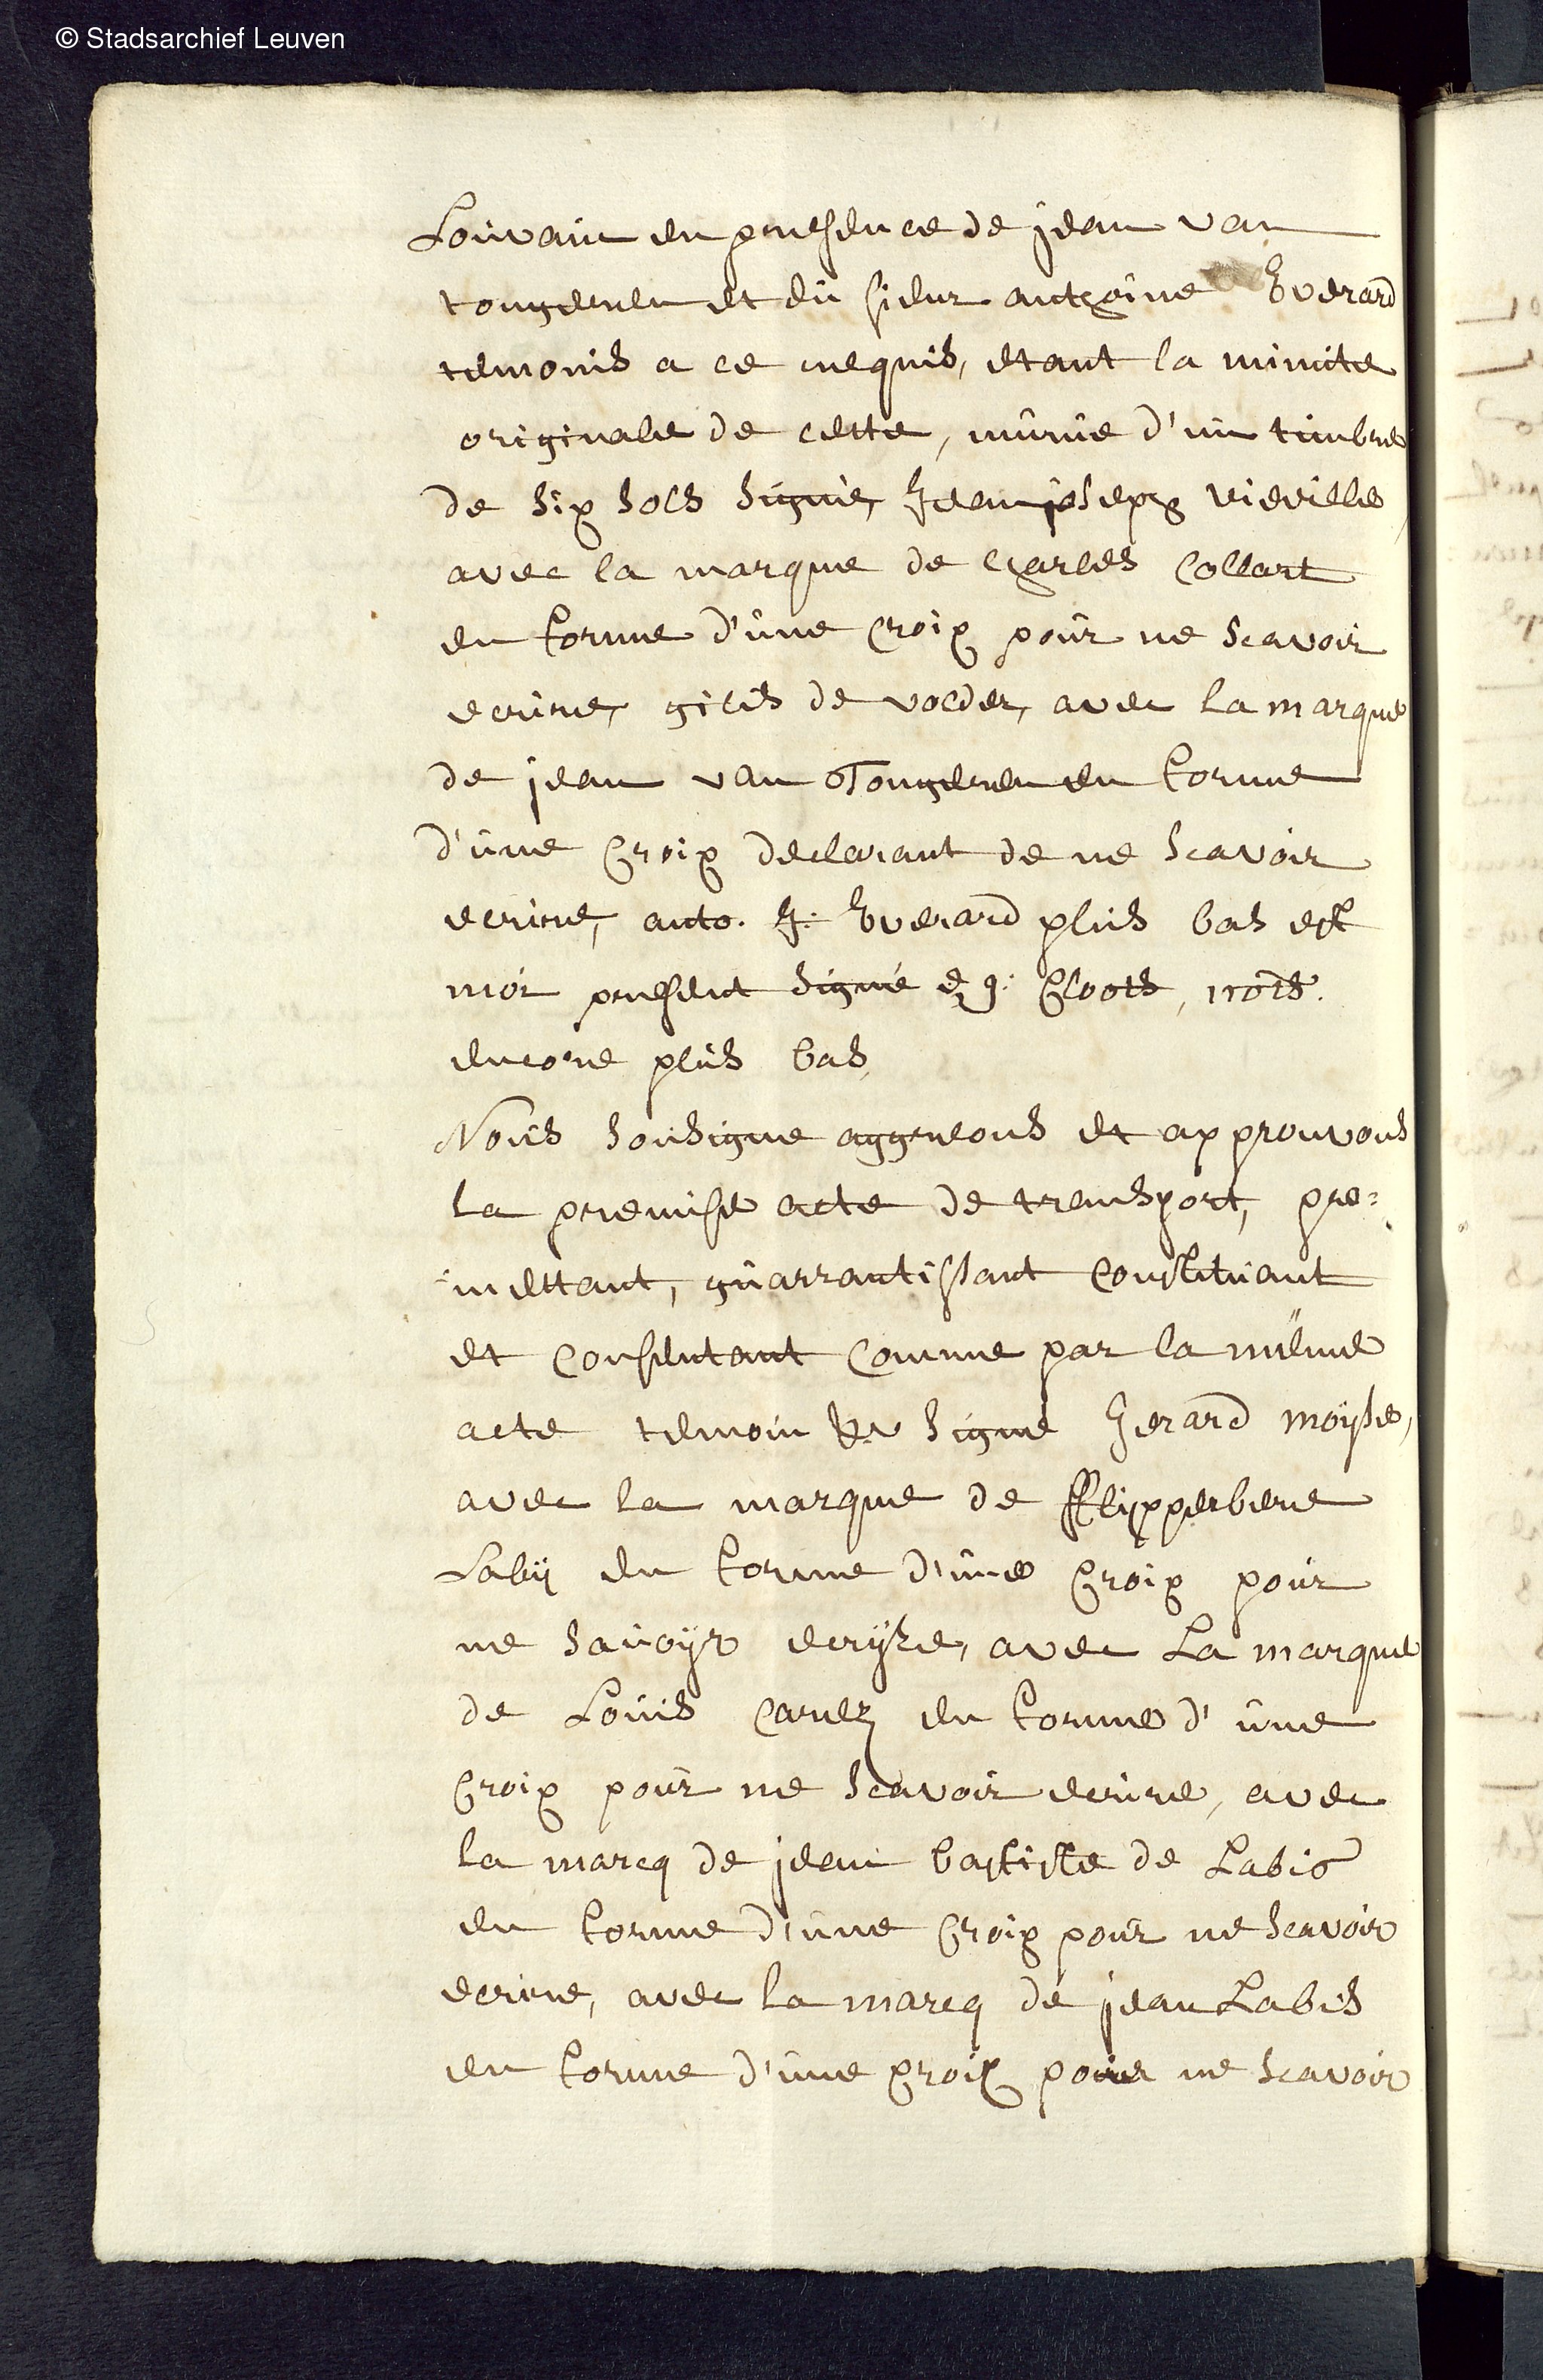 © Stadsarchief Leuven
Louvain en presence de jean van
tongeren et du sieur anthoine Everard
temoins a ce requis, etant la minute
originale de cette, munie d'un timbre
de six sols signé, Jean joseph vieville
avec la marque de charles Collart
en forme d'une croix pour ne scavoir
ecrire, gilis de volder, avec la marque
de jean van Tongeren en forme
d'une Croix declarant de ne scavoir
ecrire, anto. J. Everard plus bas est
moi present signé g: Cloots, nots.
encore plus bas,
Nous sousigne aggreons et approuvons
la premise acte de transport, pro=
mettant, guarrantissant Constituant
et Consentant Comme par la même
acte temoin signé Gerard moyse,
avec la marque de Flipperbere
Labij en forme d'une Croix pour
ne savoijr ecrijre, avec La marque
de Louis Carez en forme d'une
Croix pour ne scavoir ecrire, avec
la marcq de jean batiste de Labio
en forme d'une Croix pour ne scavoir
ecrire, avec la marcq de jean Labis
en forme d'une Croix pour ne scavoir